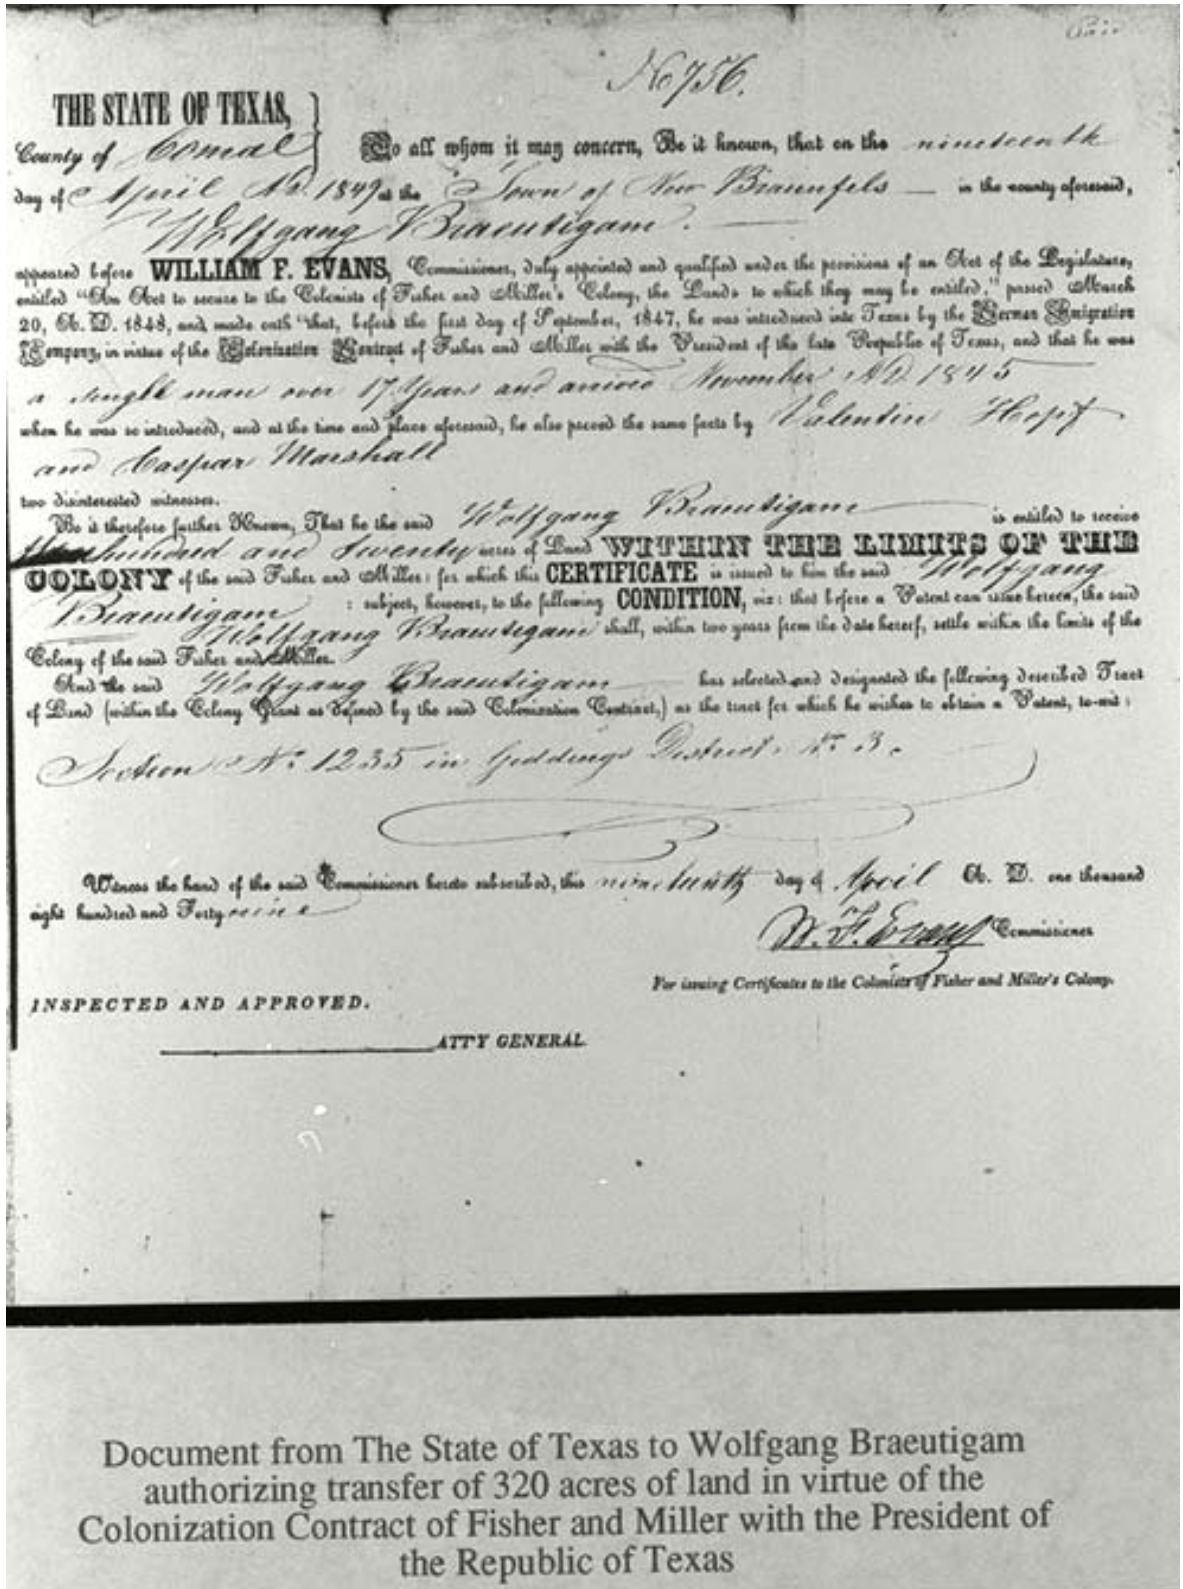 No 756.
THE STATE OF TEXAS,
County of Comal } To all whom it may concern, Be it known, that on the nineteenth
day of April A.D. 1849 at the Town of New Braunfels — in the county aforesaid,
Wolfgang Braeutigam. —
appeared before WILLIAM F. EVANS, Commissioner, duly appointed and qualified under the provisions of an Act of the Legislature,
entitled "An Act to secure to the Colonists of Fisher and Miller's Colony, the Lands to which they may be entitled," passed March
20, A. D. 1848, and made oath "that, before the first day of September, 1847, he was introduced into Texas by the German Emigration
Company, in virtue of the Colonization Contract of Fisher and Miller with the President of the late Republic of Texas, and that he was
a single man over 17 Years and arrived November A.D. 1845
when he was so introduced, and at the time and place aforesaid, he also proved the same facts by Valentin Hopf
and Caspar Marshall
two disinterested witnesses.
Be it therefore further Known, That he the said Wolfgang Braeutigam is entitled to receive
hundred and twenty acres of Land WITHIN THE LIMITS OF THE
COLONY of the said Fisher and Miller: for which this CERTIFICATE is issued to him the said Wolfgang
Braeutigam : subject, however, to the following CONDITION, viz: that before a Patent can issue hereon, the said
Wolfgang Braeutigam shall, within two years from the date hereof, settle within the limits of the
Colony of the said Fisher and Miller.
And the said Wolfgang Braeutigam has selected and designated the following described Tract
of Land (within the Colony Grant as defined by the said Colonization Contract,) as the tract for which he wishes to obtain a Patent, to-wit:
Section No. 1235 in Giddings District No. 3.
Witness the hand of the said Commissioner hereto subscribed, this nineteenth day of April A. D. one thousand
eight hundred and Forty nine
W. F. Evans Commissioner
For issuing Certificates to the Colonists of Fisher and Miller's Colony.
INSPECTED AND APPROVED.
ATT'Y GENERAL
Document from The State of Texas to Wolfgang Braeutigam
authorizing transfer of 320 acres of land in virtue of the
Colonization Contract of Fisher and Miller with the President of
the Republic of Texas